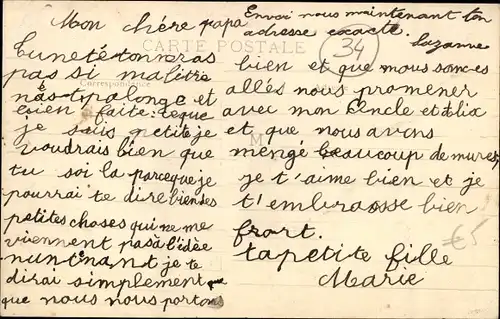 Mon chére papa
Envoi nous maintenant ton
adresse exacte.
Suzanne
34
CARTE POSTALE
Correspondance
tu n'eté tonneras
pas si ma lettre
n'est pa longe et
bien faite: ceque
je suis petite je
voudrais bien que
tu soi la parceque je
pourrai te dire bien des
petites choses qui ne me
viennent pas à l'idée
je te
dirai simplement
que nous nous portons
bien et que nous somes
allés nous promener
avec mon Encle et
et que nous avons
mengé beaucoup de mures,
je t'aime bien et je
t'embrasse bien
frort.
ta petite fille
Marie
€5